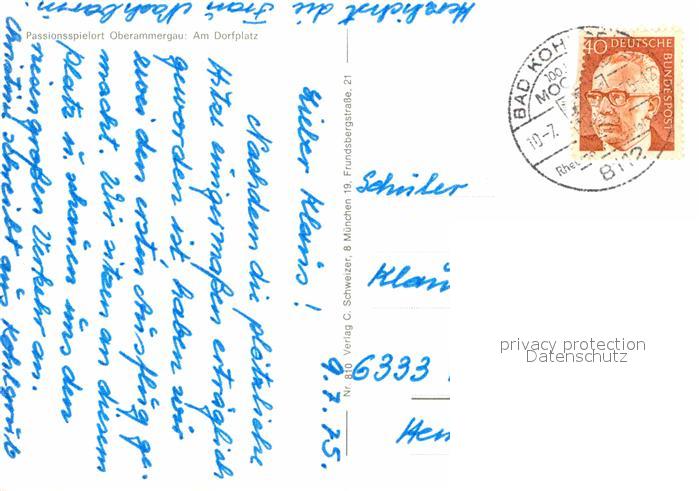 Herzlichst die Frau Nachbarin.
Passionsspielort Oberammergau: Am Dorfplatz
9.7.75.
Lieber Klaus!
Nachdem die plötzliche
Hitze einigermaßen erträglich
geworden ist, haben wir
zwei den ersten Ausflug ge-
macht. Wir sitzen an diesem
Platz u. schauen uns den
riesengroßen Verkehr an.
schreibt aus Kohlgrub
Nr. 810 Verlag C. Schweizer, 8 München 19, Frundsbergstraße, 21
Schüler
Klau
6333
Her
BAD KOH
MOO
10-7.
Rheu
8112
40 DEUTSCHE
BUNDESPOST
privacy protection
Datenschutz